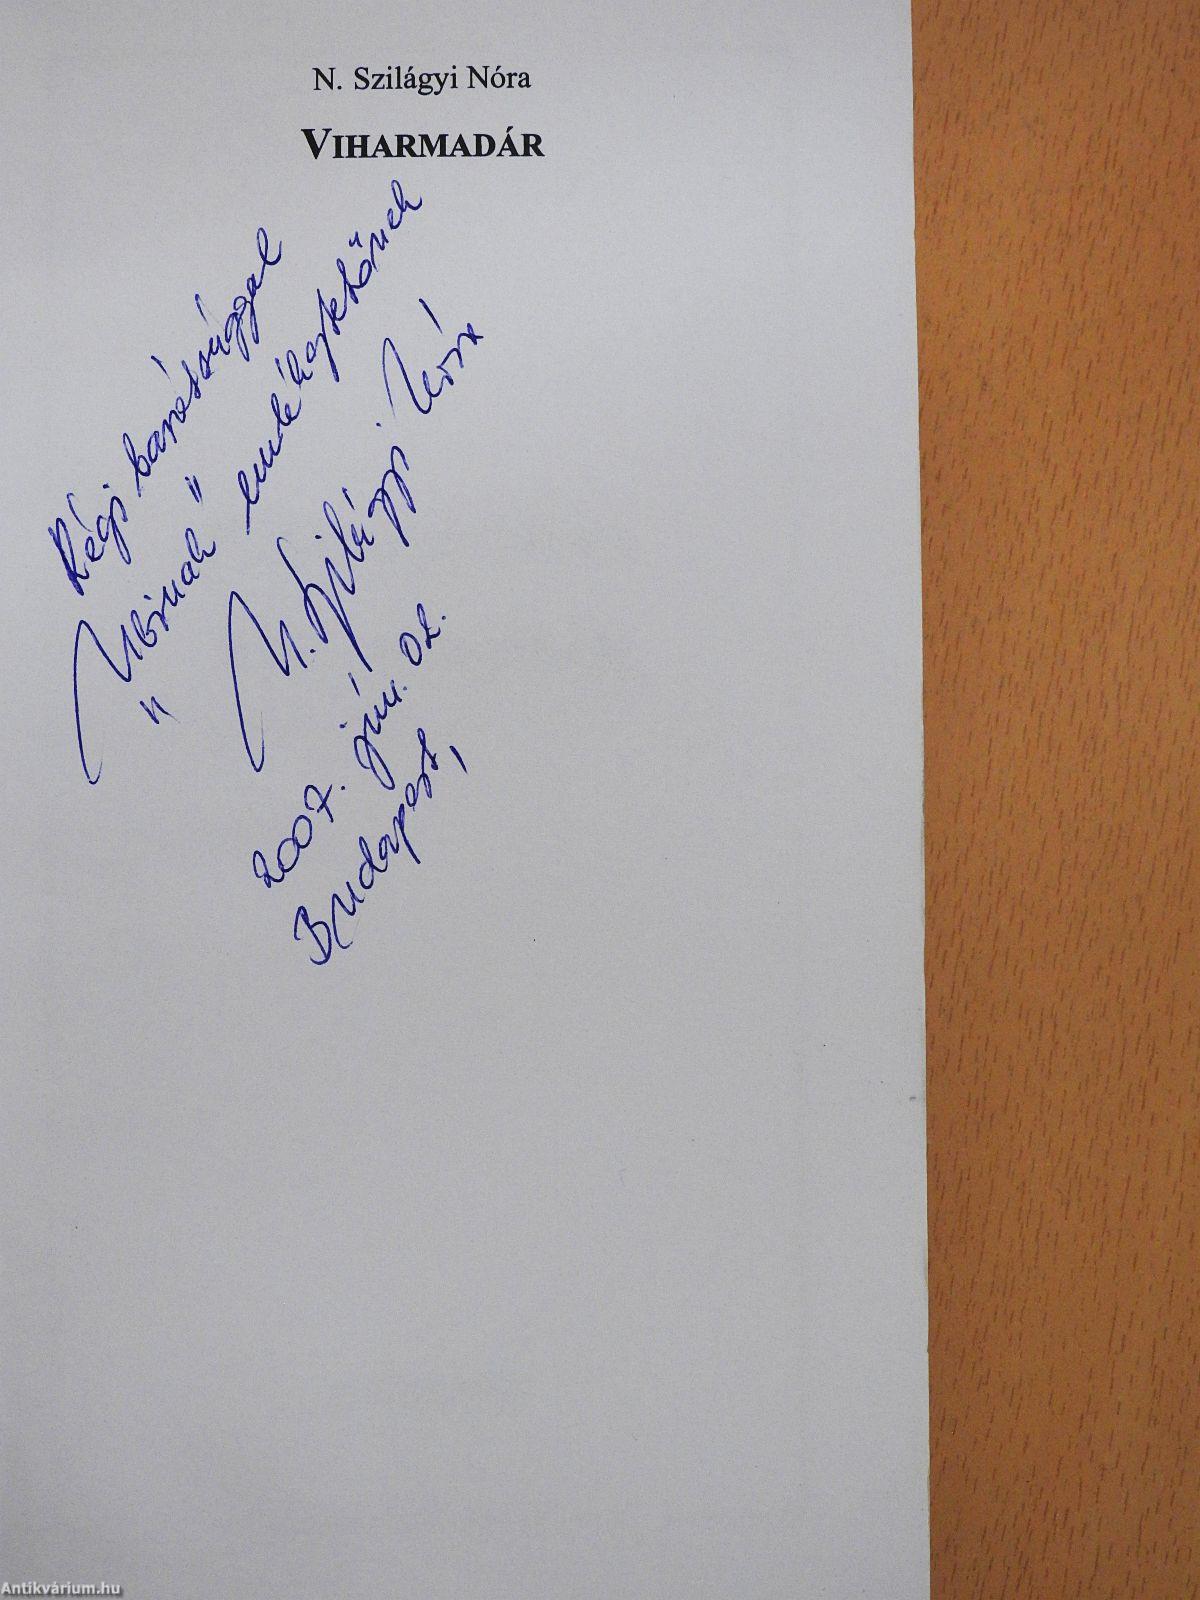 N. Szilágyi Nóra
VIHARMADÁR
Régi barátsággal
"Nórnak"
N. Szilágyi Nóra
2007. jún. 02.
Budapest,
Antikvárium.hu